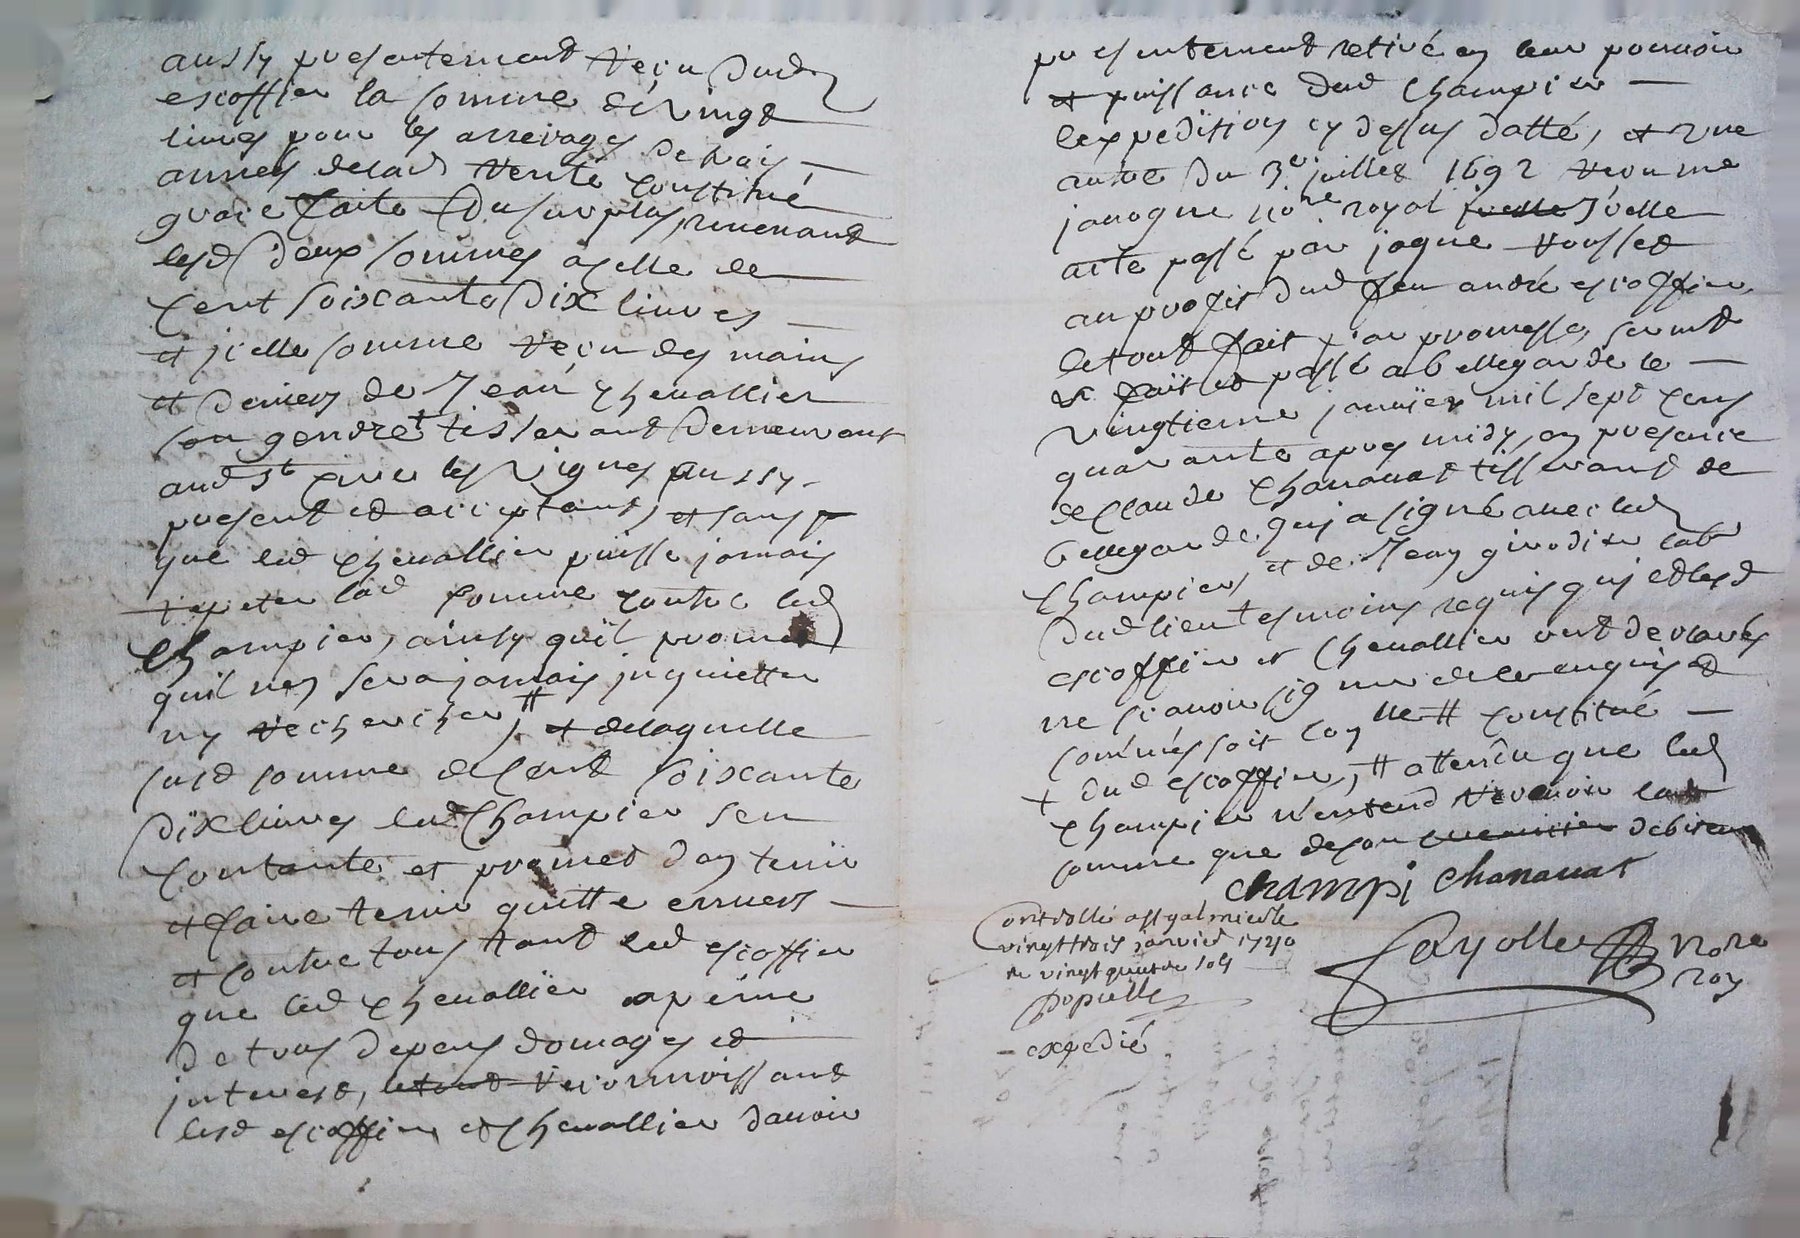 aussy presentement reçu dud
escoffier la somme de vingt
livres pour les arreirages de trois
années de lad rente constitué
grace faite du surplus, revenant
lesd deux sommes a celle de
cent soixante dix livres
et jcelle somme reçu des mains
et deniers de Jean chevallier
son gendre + tisserant demeurant
aud st cire les vignes aussy
present et acceptant, et sans
que led chevallier puisse jamais
repeter lad somme contre led
Champier, ainsy qu'il promet
quil nen sera jamais jnquietter
ny rechercher, # et de laquelle
susd somme de cent soixante
dix livres led Champier sen
contante et promet d'en tenir
et faire tenir quitte envers
et contre tous tant led escoffier
que led chevallier a peine
de tous depens domages et
jnterest, le tout reconnoissant
lesd escoffier et chevallier davoir
presentement retiré en leur pouvoir
et puissance dud Champier
lexpedition cy dessus datté, et une
autre du 3e juillet 1692 reçu me
janogne nore royal jcelle
acte passé par jaque rousset
au profit dud feu andré escoffier
le tout fait par promesse, sermt
& fait et passé a bellegarde le
vingtieme janvier mil sept cens
quarante apres midy, en presence
de Claude Chanavat tisserand de
bellegarde qui a signé avec led
Champier, et de Jean girodier lab
dud lieu tesmoins requis qui et lesd
escoffier et chevallier ont declarés
ne sçavoir signer de ce enquis et
sommés soit con lle # constitué
+ dud escoffier, # attendu que led
Champier n'entend recevoir lad
somme que de son debiteur
champi chanauat
Controllé a st galmier le
vingt trois janvier 1740
vingt quatre sols
expedié
fayolle nore
roy